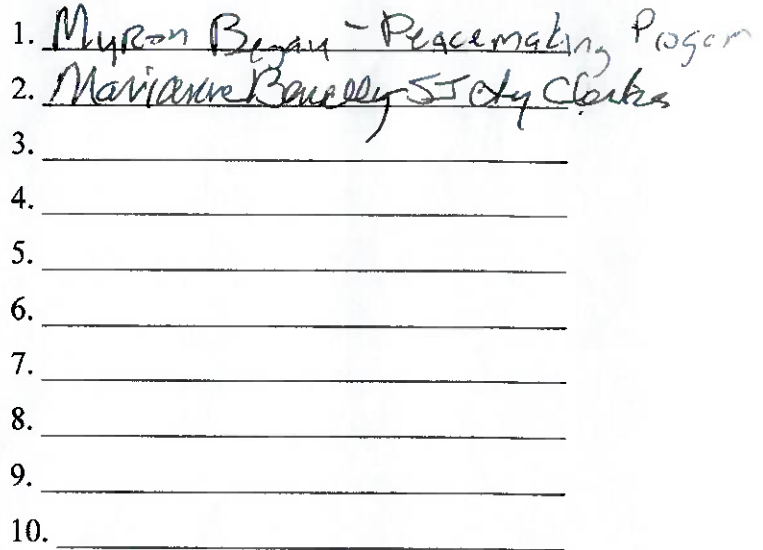 1. Myron Begay - Peacemaking Progam
2. Marianne Benally SJ Cty Clerks
3.
4.
5.
6.
7.
8.
9.
10.